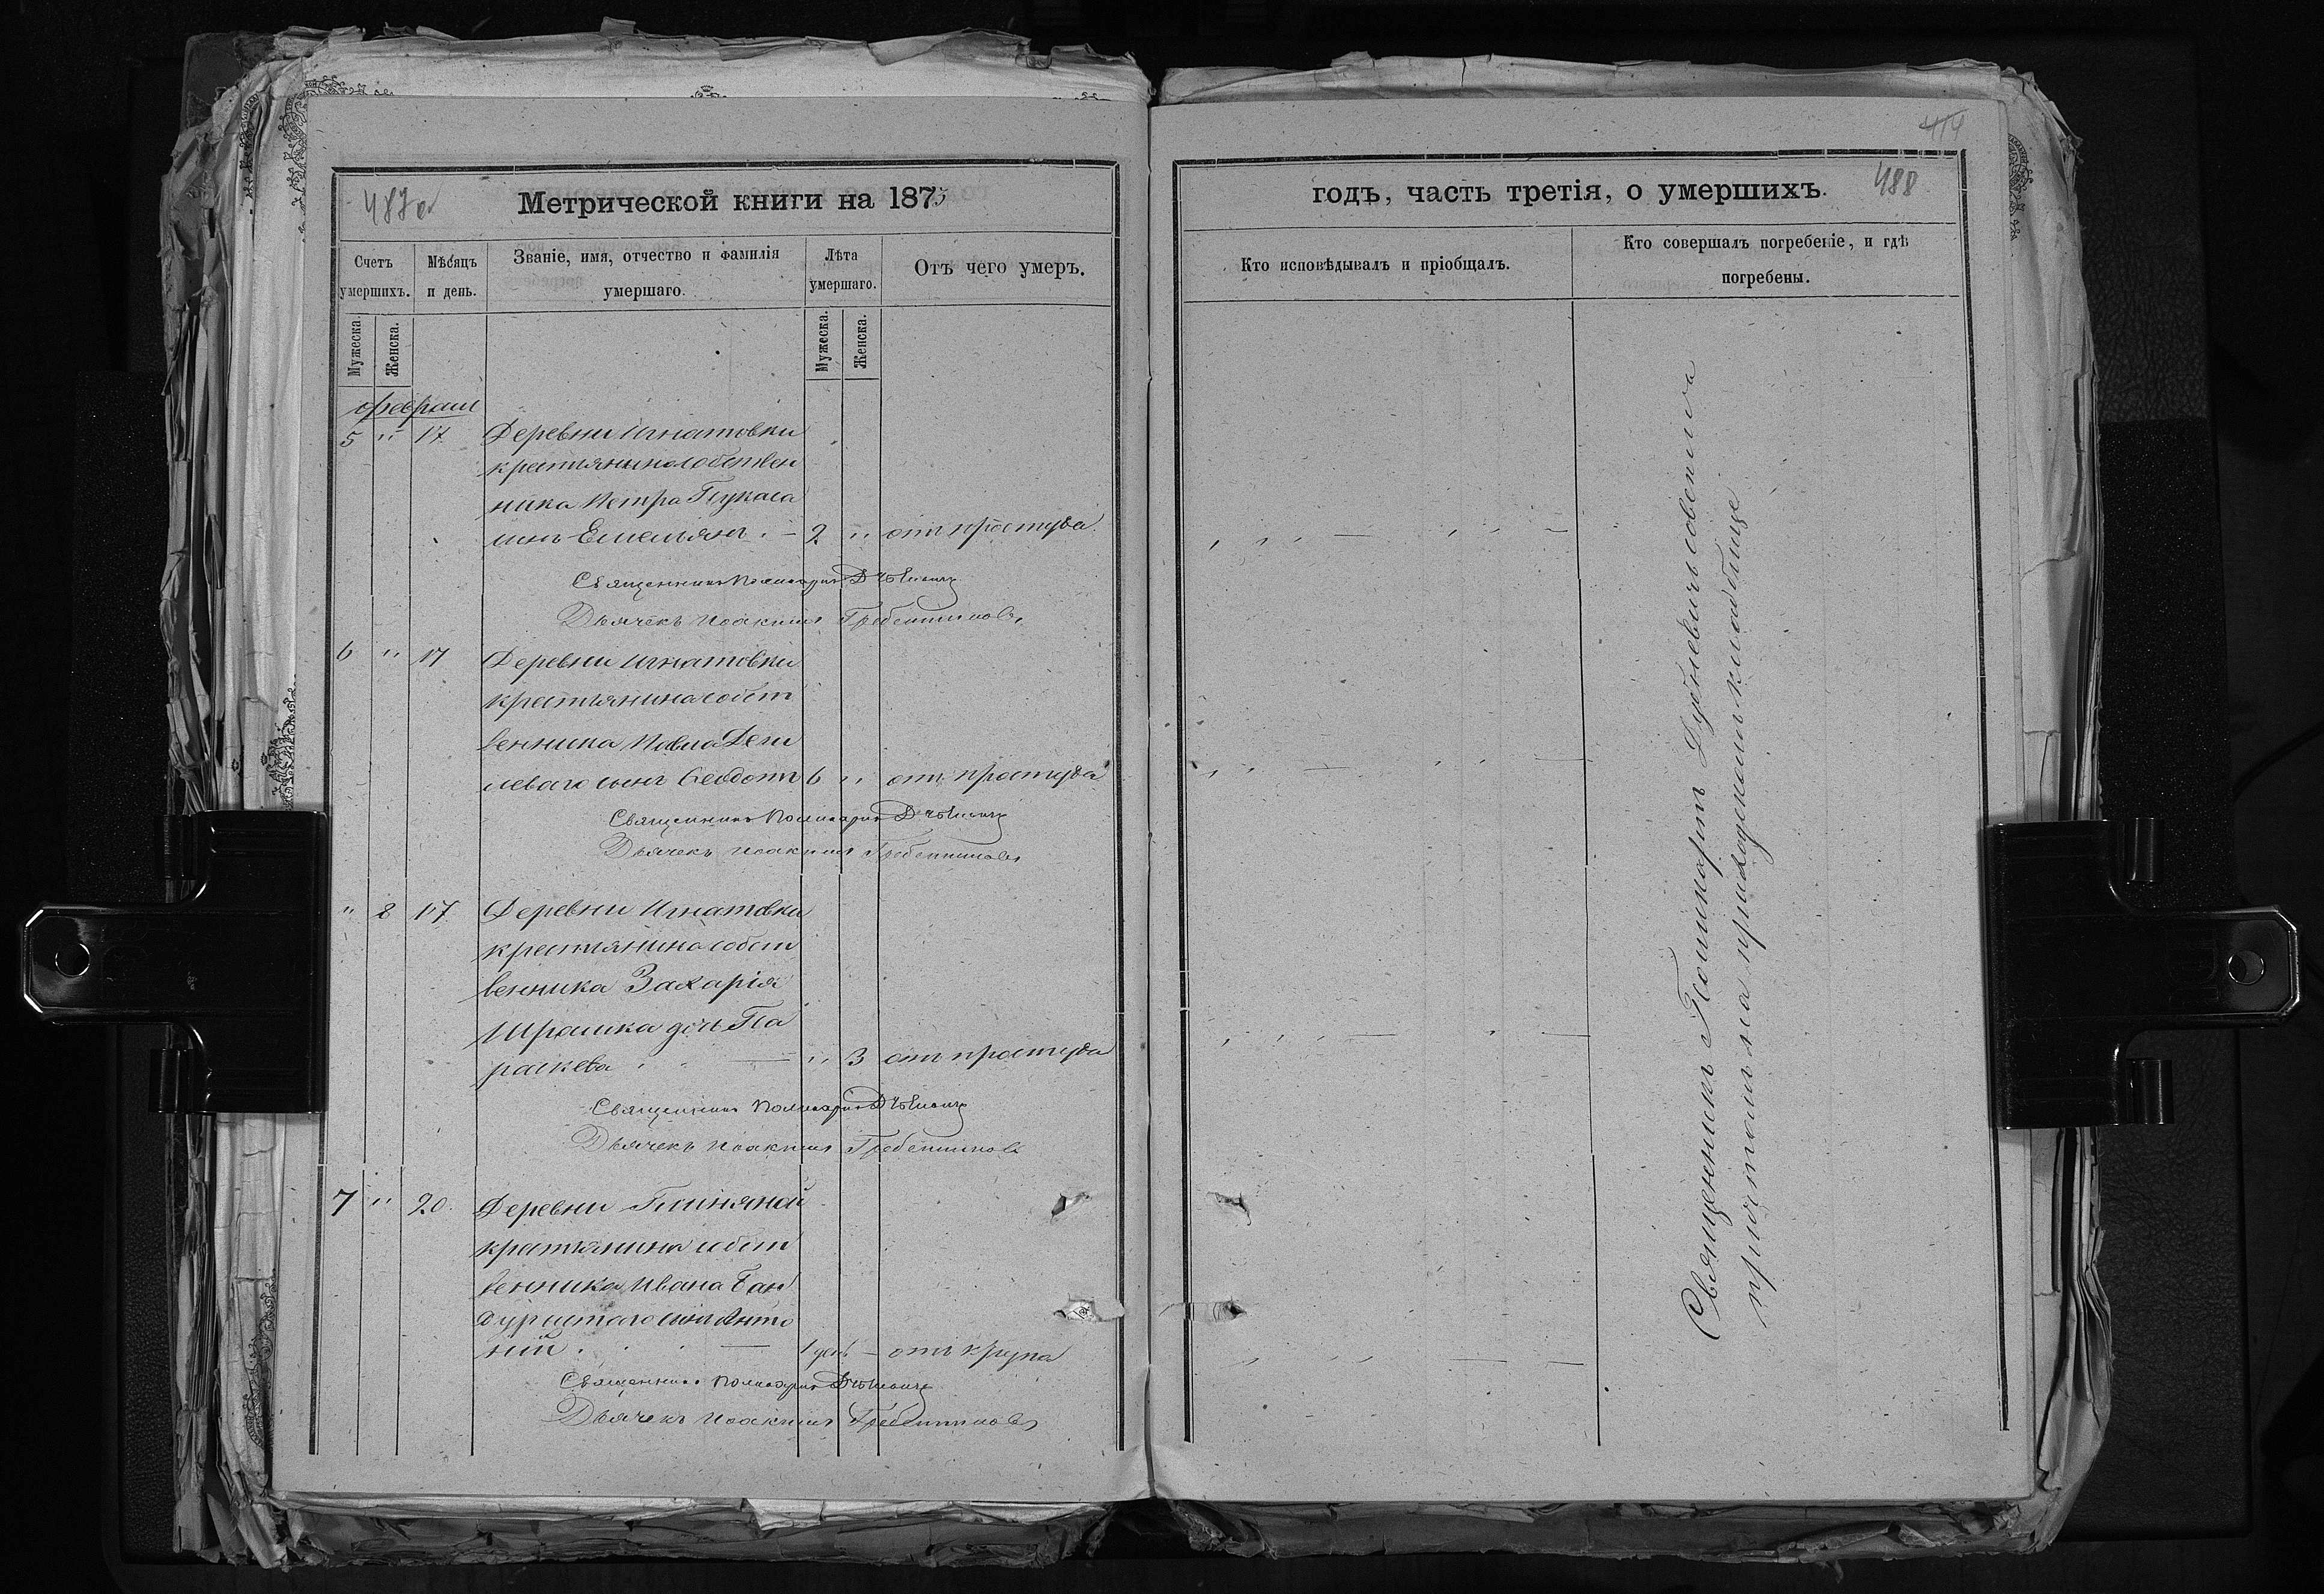 487об
Метрической книги на 1873
Счетъ умершихъ.
Мѣсяцъ и день.
Званіе, имя, отчество и фамилія умершаго.
Лѣта умершаго.
Отъ чего умеръ.
Мужеска.
Женска.
Мужеска.
Женска.
февраль
5 " 17 Деревни Игнатовки
крестьянина собствен
ника Петра
сынъ Емельянъ 2 " отъ простуды
Священникъ Поликарпъ
Дьячекъ Иоакимъ Гребенниковъ
6 " 17 Деревни Игнатовки
крестьянина собст
венника Павла
сынъ Феодотъ 6 " отъ простуды
Священникъ Поликарпъ
Дьячекъ Иоакимъ Гребенниковъ
" 8 17 Деревни Игнатовки
крестьянина собст
венника Захарія
дочь Па
раскева " 3 отъ простуды
Священникъ Поликарпъ
Дьячекъ Иоакимъ Гребенниковъ
7 " 20 Деревни Глиняной
крестьянина собст
венника Ивана Бан
дуристаго сынъ Анто
ній 1 день — отъ крупа
Священникъ Поликарпъ
Дьячекъ Иоакимъ Гребенниковъ
414
488
годъ, часть третія, о умершихъ.
Кто исповѣдывалъ и пріобщалъ.
Кто совершалъ погребеніе, и гдѣ
погребены.
Священникъ Поликарпъ
причтомъ на приходскомъ кладбище